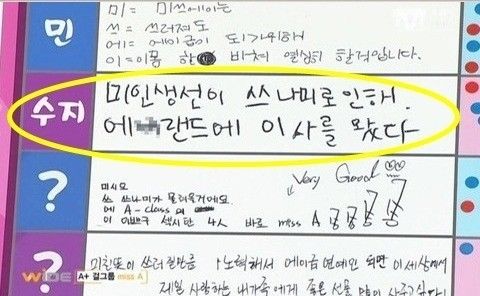 민
미 = 미쓰에이는
쓰 = 쓰러져도
에 = 에이급이 되기위해
이 = 이 몸 바쳐 열심히 할겁니다.
수지
미인생선이 쓰나미로인해.
에 랜드에 이사를 왔다
?
Very Good
미시요
쓰 쓰나미가 몰려올거에요
에 A-class의
이 이쁘구 섹시한 4人 바로 miss A 쿵쿵쿵쿵
?
미친듯이 쓰러질만큼 노력해서 에이급 연예인 되면 이세상에서
제일 사랑하는 내가족에게 좋은 선물 많이 사주고싶다.
WIDE A+ 걸그룹 miss A